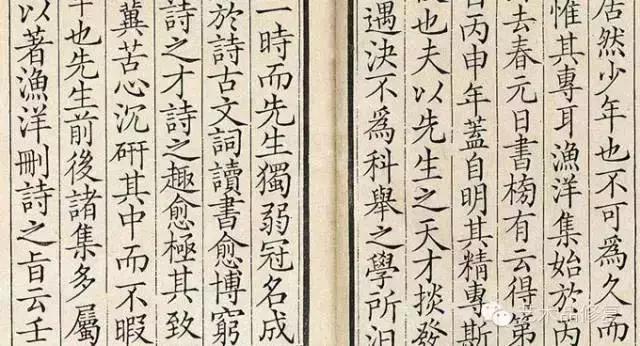 居然少年也不可為久而
惟其專耳漁洋集始於丙
去春元日書榜有云得第
丙申年蓋自明其精專斯
也夫以先生之天才掞發
遇決不為科舉之學所汩
一時而先生獨弱冠名成
於詩古文詞讀書愈博窮
詩之才詩之趣愈極其致
苦心沉硏其中而不暇
年也先生前後諸集多屬
以著漁洋刪詩之旨云壬
艺术品修复